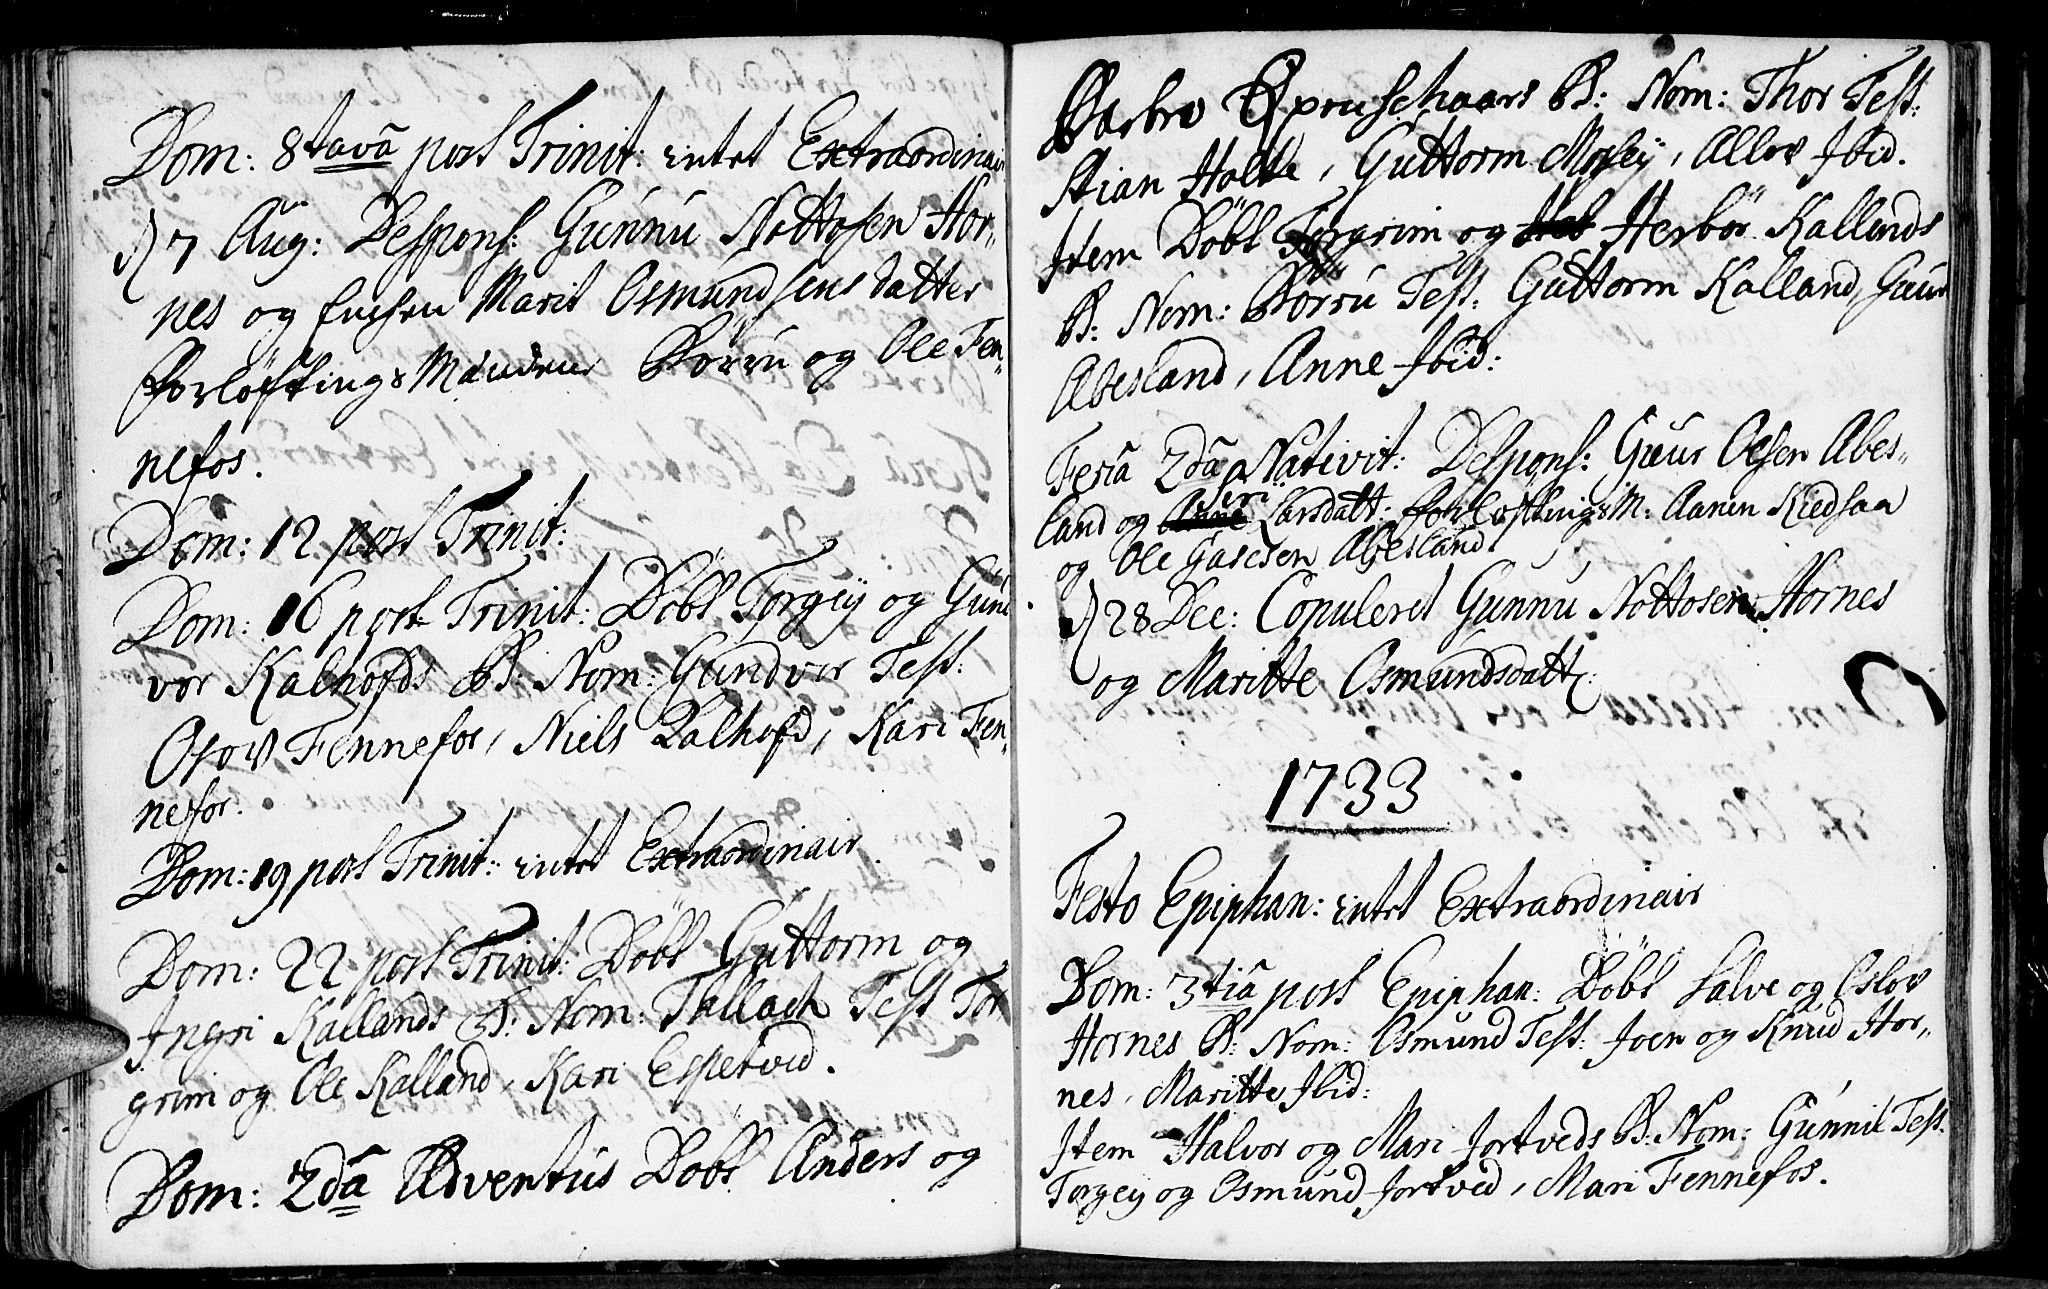 Dom: 8tavâ post Trinit: intet Extraordinair
D 7 Aug: Despons: Gunnu Nottosen Hor„
nes og Enchen Marit Osmundsens datter
Forlöftings Mændene Borru og Ole Fen„
nefos.
Dom: 12 post Trinit:
Dom: 16 post Trinit: Döbt Torgey og Gun
vor Kalhofds B: Nom: Gundvor Test:
Osov Fennefos, Niels Kalhofd, Kari Fen„
nefos.
Dom: 19 post Trinit: intet Extraordinair.
Dom: 22 post Trinit: Döbt Guttorm og
Ingri Kallands B: Nom: Tallach Test Tor
grim og Ole Kalland, Kari Espetved.
Dom: 2dâ Adventus Döbt Anders og
Barbro B: Nom: Thor Test:
Stian Holte, Guttorm Mosey, Allov Ibid.
Item Döbt Torgrim og Herbör Kallands
B: Nom: Borru Test: Guttorm Kalland, Guur
Abesland, Anne Ibid:
Feria 2dâ Nativit: Despons: Guur Olsen Abes„
land og Siri Larsdatt: ForloftningsM: Aanen Kiedsaa
og Ole Abesland.
D 28 Dec: Copuleret Gunnu Nottosen Hornes
og Maritte Osmundsdatt:
1733
Festo Epiphan: intet Extraordinair
Dom: 3tiâ post Epiphan: Döbt Salve og Oslov
Hornes B: Nom: Osmund Test: Joen og Knud Hor„
nes, Maritte Ibid:
Item Halvor og Mari Jortveds B: Nom: Gunnil Test:
Torgey og Osmund Jortved, Mari Fennefos.